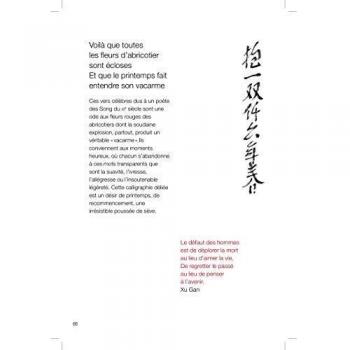 Voilà que toutes
les fleurs d'abricotier
sont écloses
Et que le printemps fait
entendre son vacarme
Ces vers célèbres dus à un poète
des Song du XIe siècle sont une
ode aux fleurs rouges des
abricotiers dont la soudaine
explosion, partout, produit un
véritable «vacarme».Ils
conviennent aux moments
heureux, où chacun s'abandonne
à ces mots transparents que
sont la suavité, l'ivresse,
l'allégresse ou l'insoutenable
légèreté. Cette calligraphie déliée
est un désir de printemps, de
recommencement, une
irrésistible poussée de sève.
Le défaut des hommes
est de déplorer la mort
au lieu d'aimer la vie,
De regretter le passé
au lieu de penser
à l'avenir.
Xu Gan